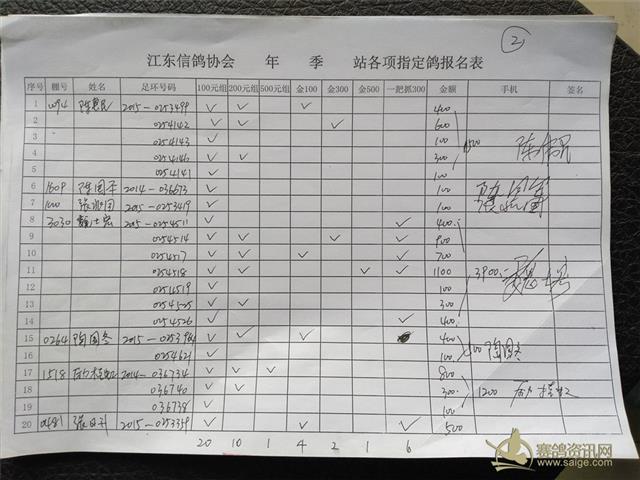 ②
江东信鸽协会 年 季 站各项指定鸽报名表
序号 棚号 姓名 足环号码 100元组 200元组 500元组 金100 金300 金500 一把抓300 金额 手机 签名
1 2015-0253499 ✓ ✓ ✓ 400
2 0254142 ✓ ✓ ✓ 600
3 0254143 ✓ 100
4 0254146 ✓ ✓ 300
5 0254141 ✓ 100
6 1609 陈国平 2014-036673 ✓ 100
7 2015-0253419 ✓ 100
8 3030 2015-0254511 ✓ ✓ 400
9 0254514 ✓ ✓ ✓ ✓ 900
10 0254517 ✓ ✓ ✓ ✓ 700
11 0254518 ✓ ✓ ✓ ✓ 1100 3900
12 0254519 ✓ 100
13 0254525 ✓ ✓ 300
14 0254526 ✓ ✓ 400
15 0264 陶国冬 2015- ✓ ✓ ✓ 400
16 0254621 ✓ 100 陶国冬
17 1518 2014-036734 ✓ ✓ ✓ 800
18 036740 ✓ ✓ 300 1200
19 036738 ✓ 100
20 0481 2015-0253359 ✓ ✓ ✓ 500
20 10 1 4 2 1 6
赛鸽资讯网
www.saige.com